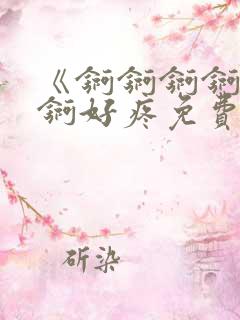 《锕锕锕锕
锕好疼免费
斫染